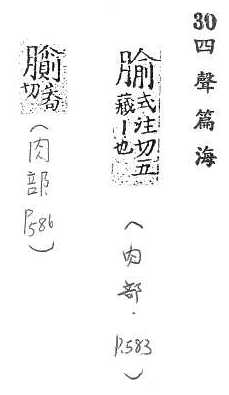 30 四聲篇海
腧式注切五
藏丨也
(肉部．P.583)
切
(肉部 P586)